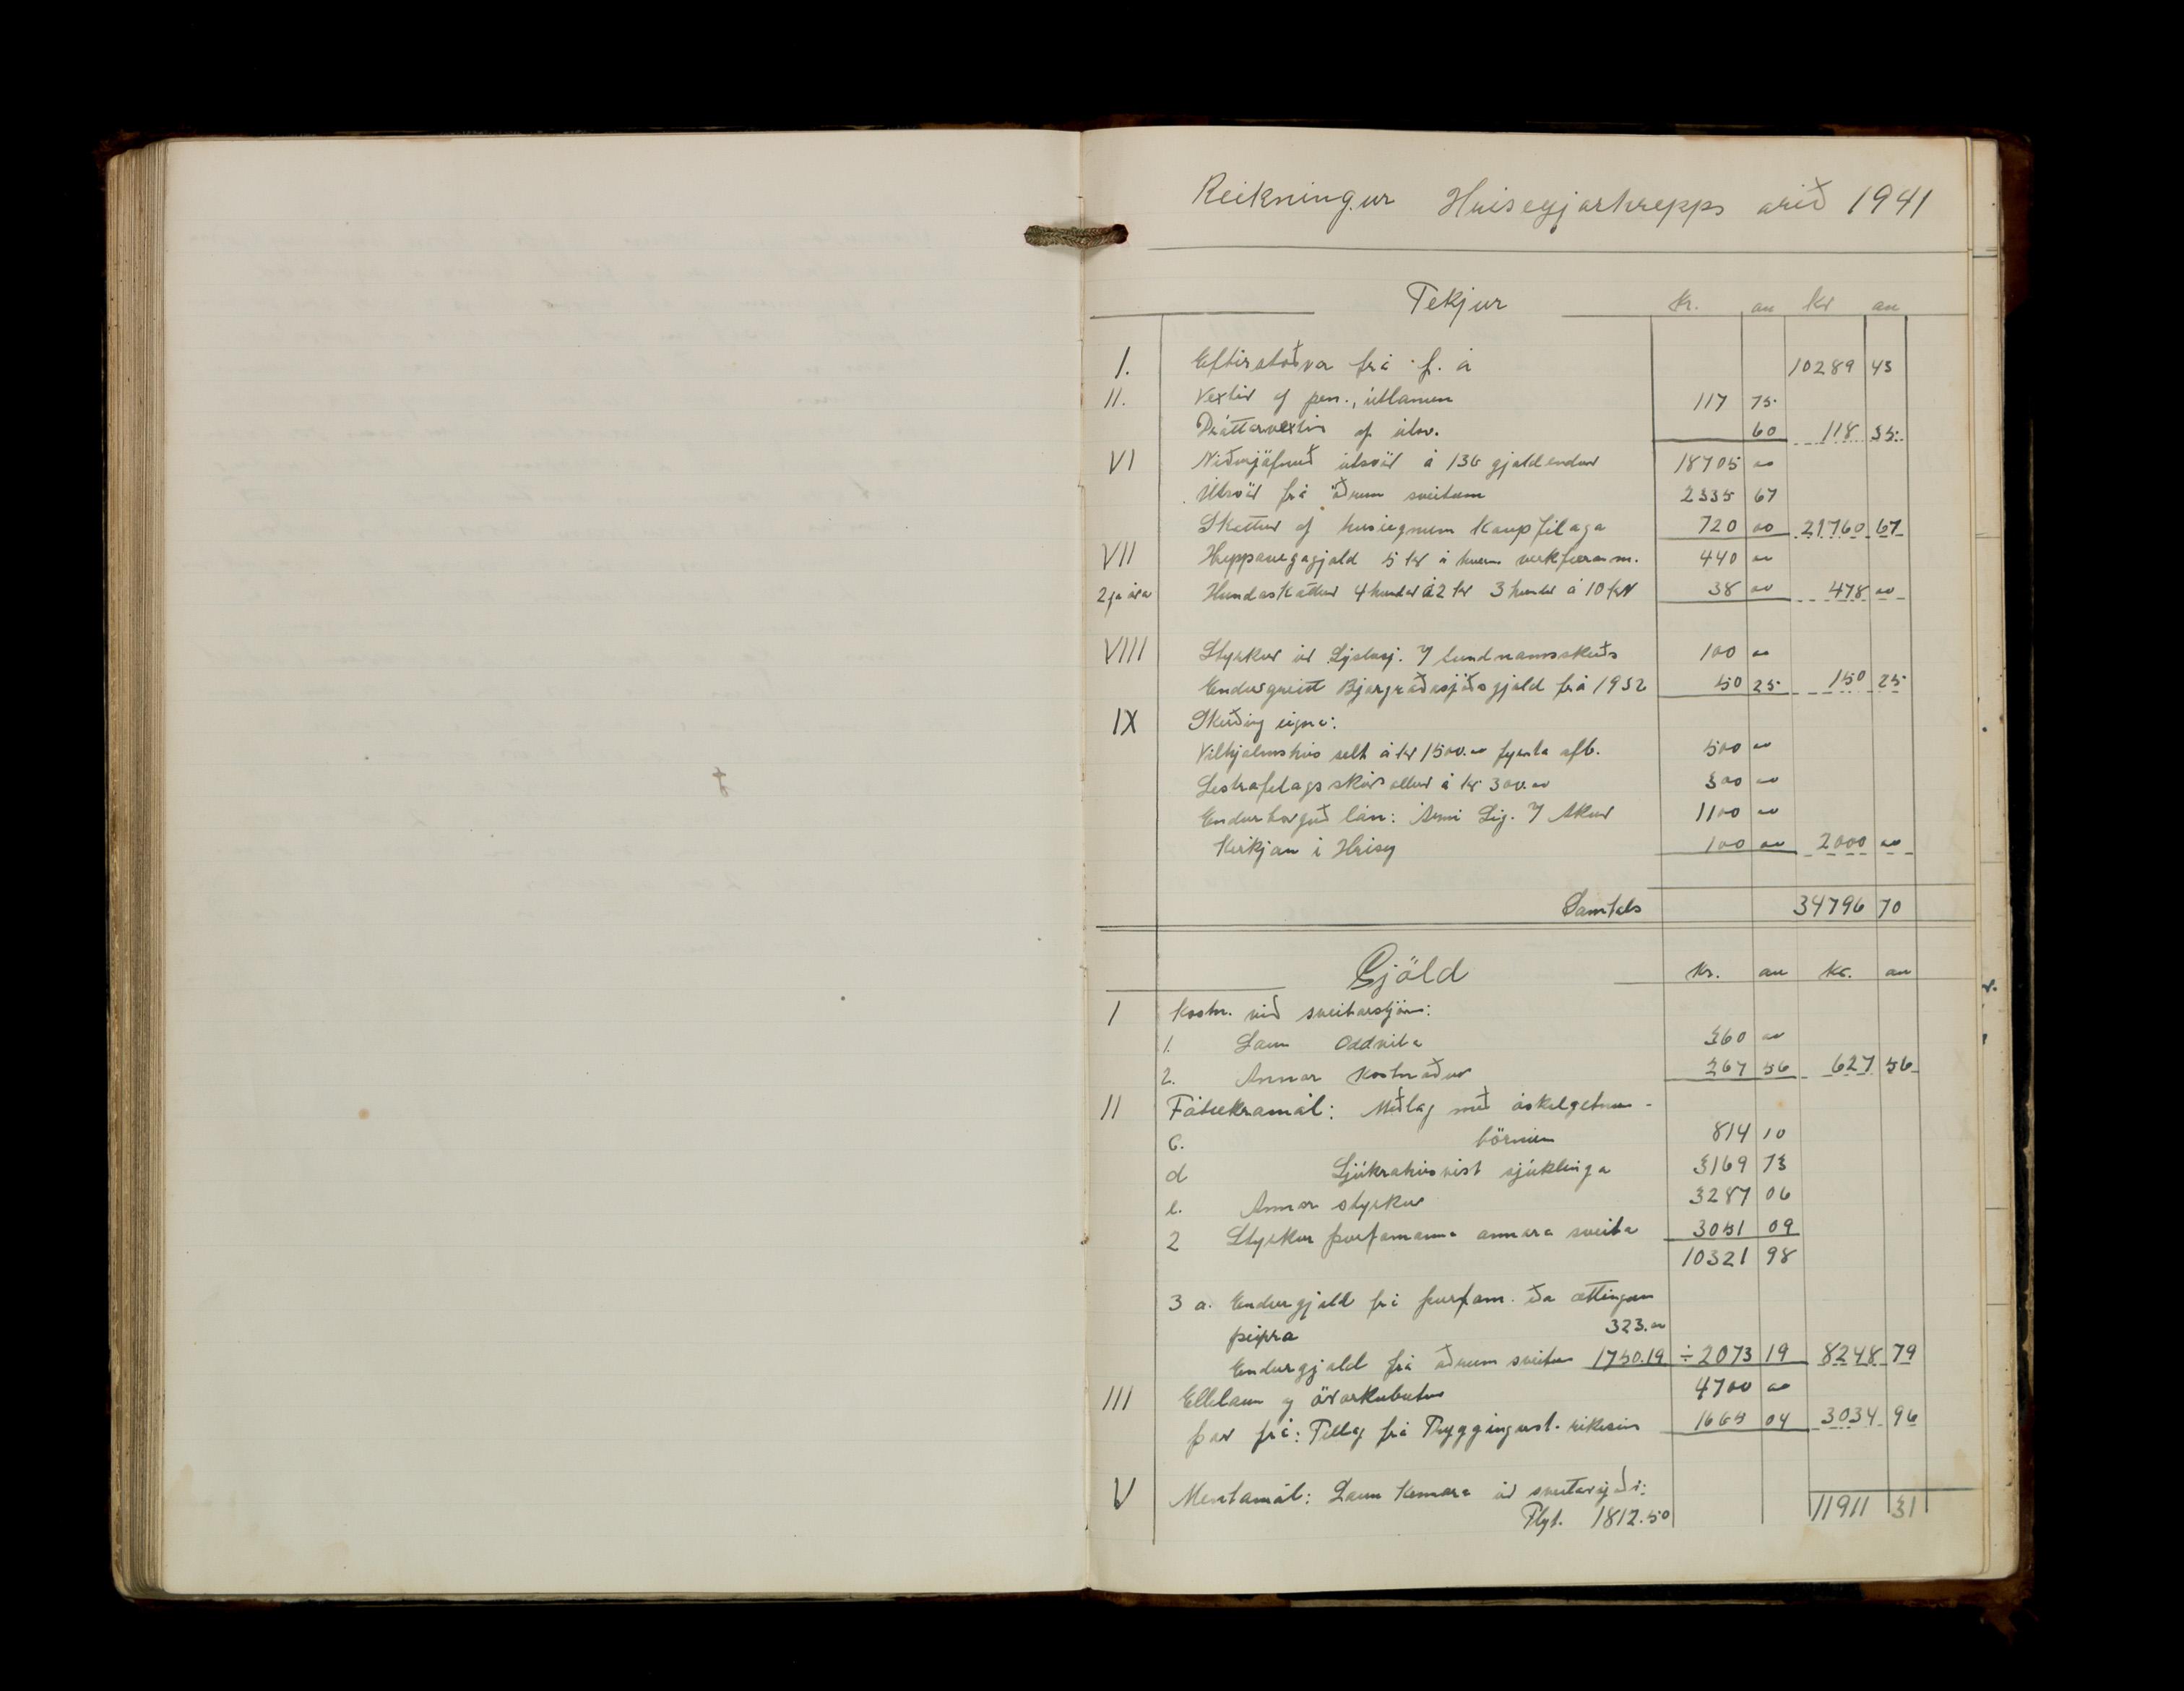 Reikningur Hriseyjarhrepps arið 1941
Tekjur Kr. au Kr au
I. Eftirstöðvar frá f. á 10289 43
II. Vextir af pen., útlánum 117 75
Dráttarvextir af útsv. 60 118 35
VI Niðurjöfnuð útsvör á 136 gjaldendur 18705 00
Útsvör frá öðrum sveitum 2335 67
Skattur af húseignum Kaupfélaga 720 00 21760 67
VII Hreppavegagjald 5 kr á hvern verkfærann m. 440 00
2ja ára Hundaskattur 4 hundar á 2 kr 3 hundar á 10 kr 38 00 478 00
VIII Styrkur úr Sýslusj. 100 00
Endurgreitt Bjargráðasjóðsgjald frá 1932 50 25 150 25
IX Skerðing eigna:
Vilhjálmshús selt á kr 1500.00 fyrsta afb. 500 00
Lestrafélagsskúr seldur á kr 300.00 300 00
Endurborguð lán: Árni Sig. 1100 00
Kirkjan i Hrísey 100 00 2000 00
Samtals 34796 70
Gjöld Kr. au Kr. au
I Kostn. við sveitarstjórn:
1. Laun Oddvita 360 00
2. Annar Kostnaður 267 56 627 56
II Fátækramál: Meðlag með óskilgetnum -
c. börnum 814 10
d Sjúkrahúsvist sjúklinga 3169 73
e. Annar styrkur 3287 06
2 Styrkur þurfamanna annara sveita 3051 09
10321 98
3 a. Endurgjald frá þurfam. eða ættingjum
þeirra 323.00
Endurgjald frá öðrum sveitum 1750.19 ÷ 2073 19 8248 79
III Ellilaun og örorkubætur 4700 00
þar frá: Tillag frá Tryggingarst. ríkisins 1665 04 3034 96
V Mentamál: Laun Kennara úr sveitarsjóði:
Flyt. 1812.50 11911 31